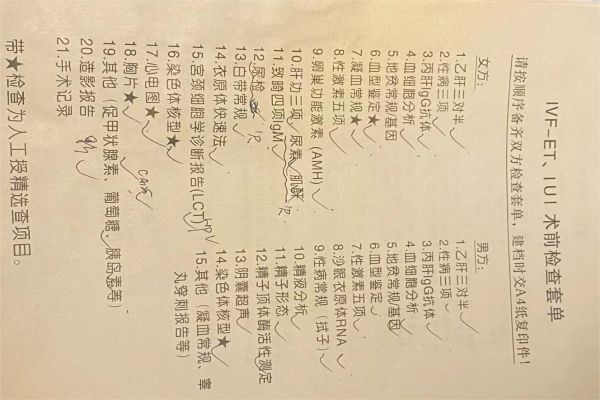 IVF-ET、IUI 术前检查套单
请按顺序备齐双方检查套单，建档时交A4纸复印件！
女方：
1.乙肝三对半
2.性病三项
3.丙肝IgG抗体
4.血细胞分析
5.地贫常规/基因
6.血型鉴定★
7.凝血常规★
8.性激素五项
9.卵巢功能激素 (AMH)
10.肝功三项 尿素 肌酐
11.致畸四项IgM
12.尿检
13.白带常规
14.衣原体快速法
15.宫颈细胞学诊断报告(LCT)
16.染色体核型★
17.心电图★
18.胸片★
19.其他（促甲状腺素、葡萄糖、胰岛素等）
20.造影报告
21.手术记录
男方：
1.乙肝三对半
2.性病三项
3.丙肝IgG抗体
4.血细胞分析
5.地贫常规/基因
6.血型鉴定
7.性激素五项
8.沙眼衣原体RNA
9.性病常规（拭子）
10.精液分析
11.精子形态
12.精子顶体酶活性测定
13.阴囊超声
14.染色体核型★
15.其他（凝血常规、睾
丸穿刺报告等）
带★检查为人工授精选查项目。